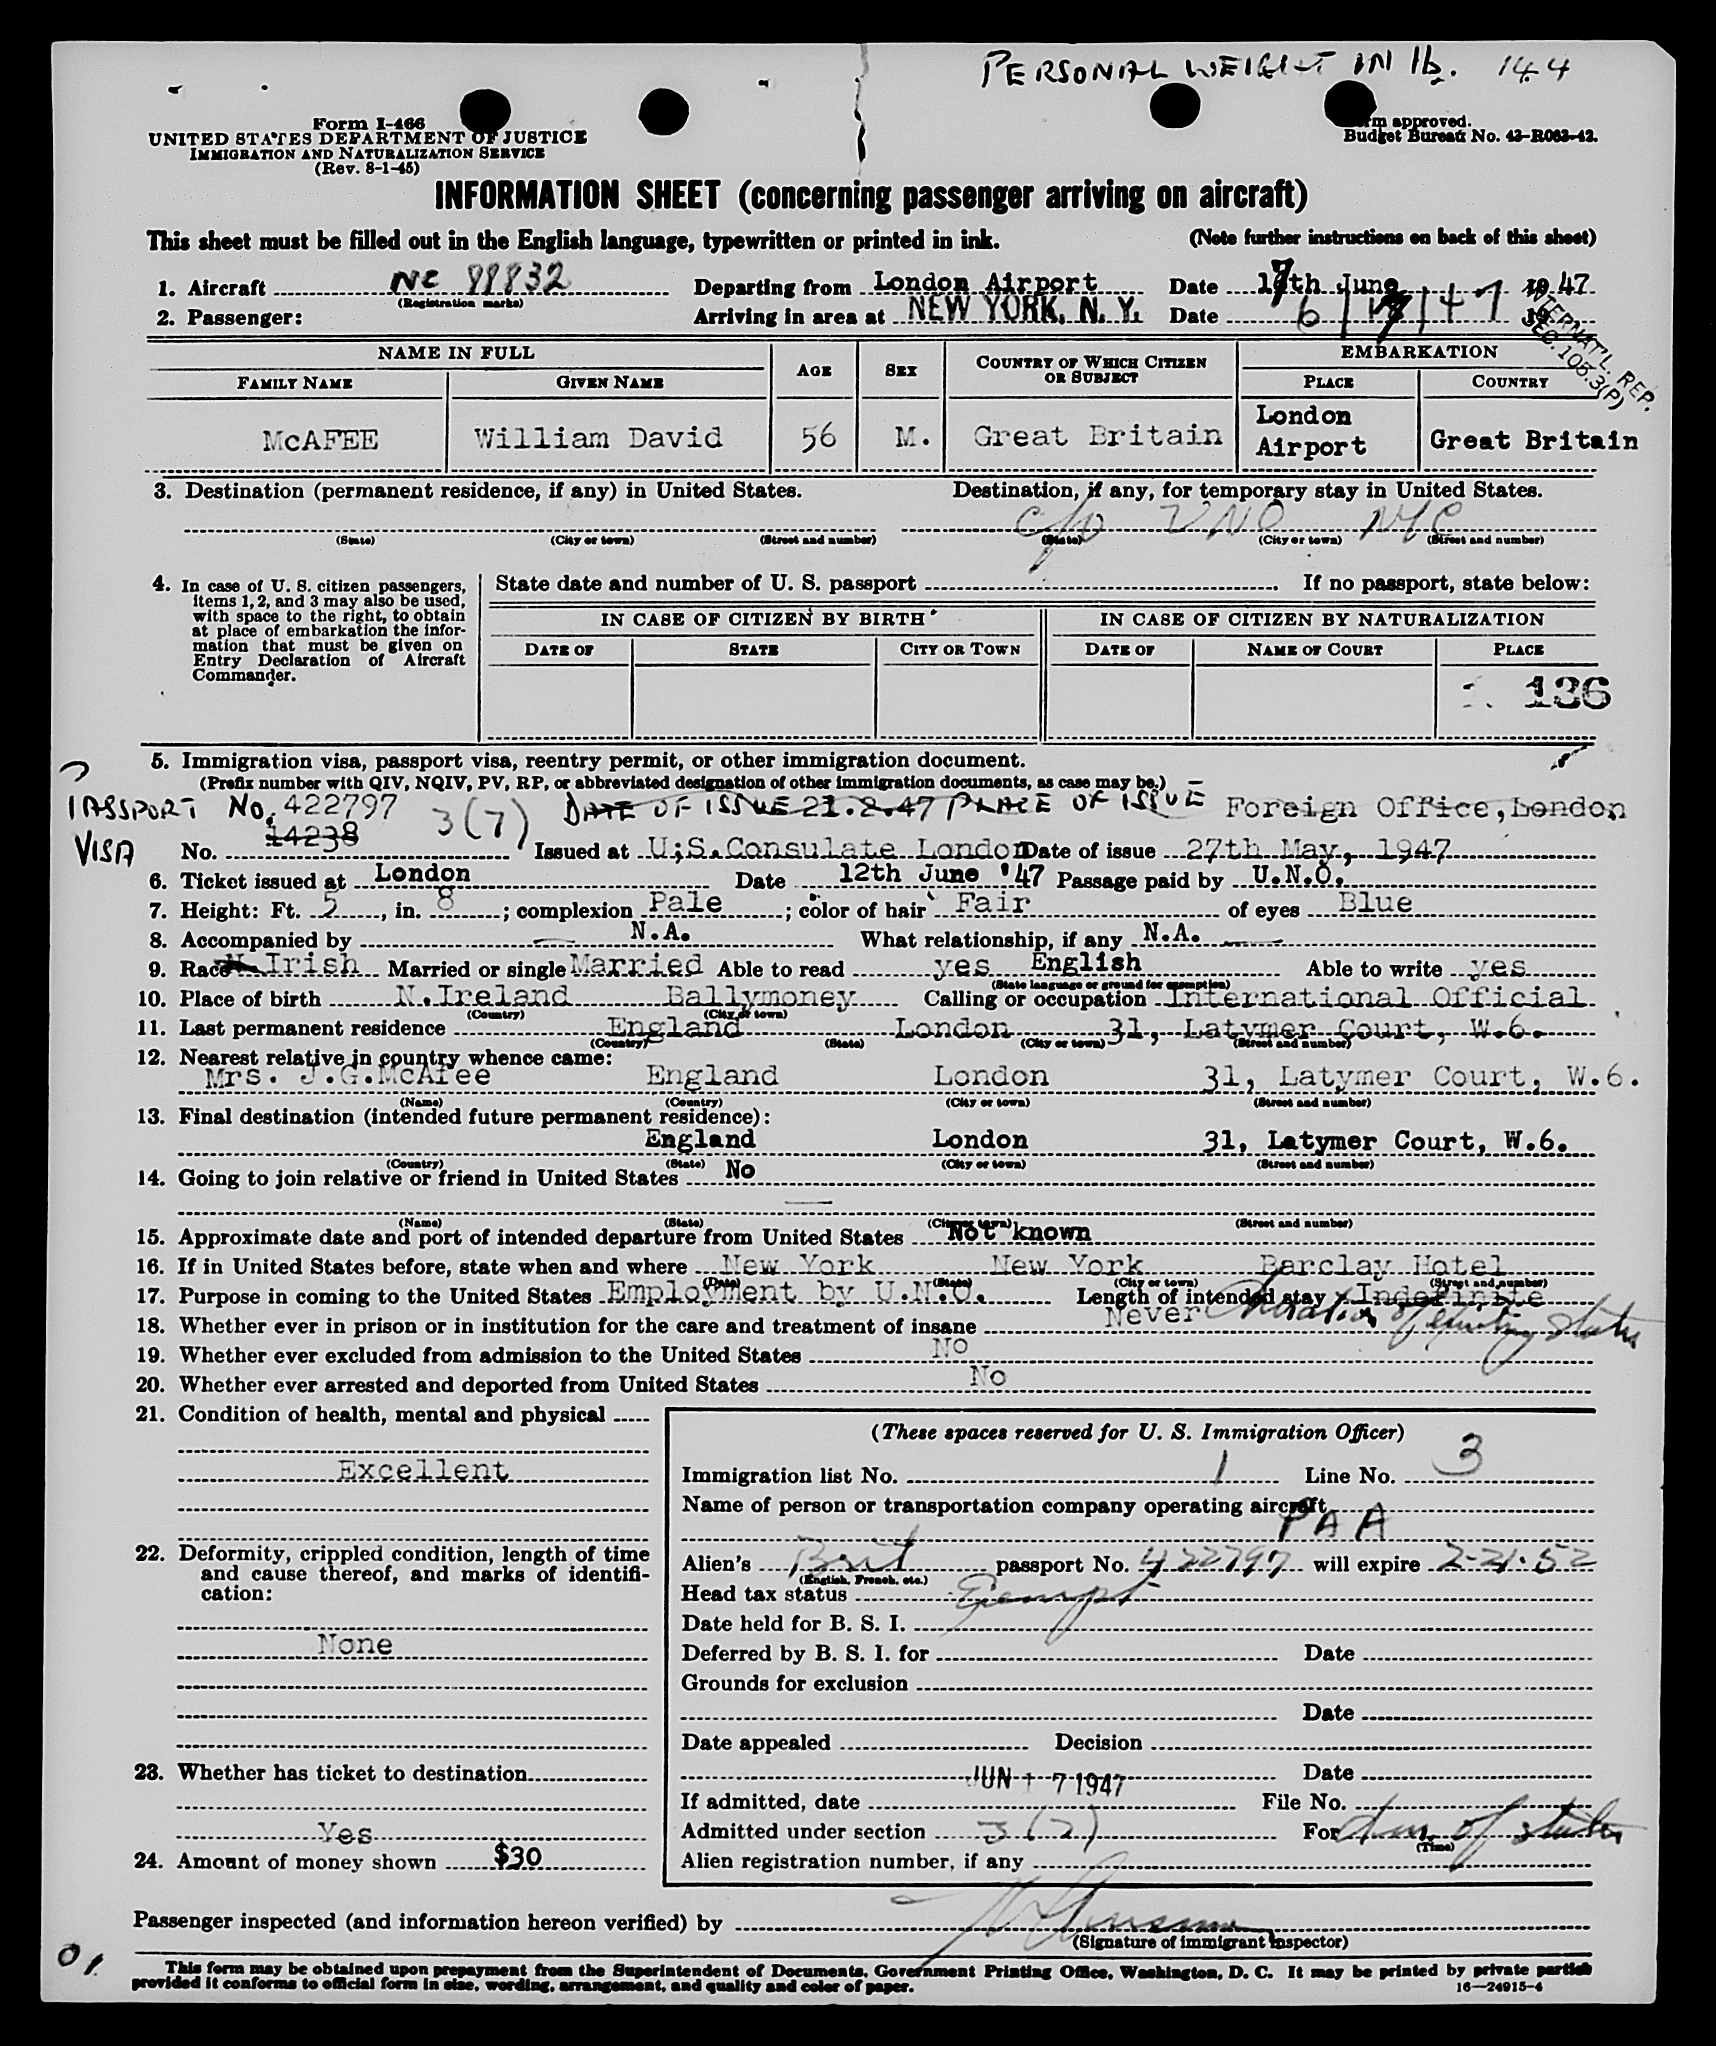 PERSONAL WEIGHT IN lb. 144
Form I-466
UNITED STATES DEPARTMENT OF JUSTICE
IMMIGRATION AND NATURALIZATION SERVICE
(Rev. 8-1-45)
rm approved.
Budget Bureau No. 43-R063-42.
INFORMATION SHEET (concerning passenger arriving on aircraft)
This sheet must be filled out in the English language, typewritten or printed in ink. (Note further instructions on back of this sheet)
1. Aircraft NC 88832 Departing from London Airport Date 17th June 1947
(Registration marks)
2. Passenger: Arriving in area at NEW YORK, N. Y. Date 6/17/47 19
INTERNAT'L. REP.
SEC. 103.3(P)
NAME IN FULL AGE SEX COUNTRY OF WHICH CITIZEN OR SUBJECT EMBARKATION
FAMILY NAME GIVEN NAME PLACE COUNTRY
McAFEE William David 56 M. Great Britain London Airport Great Britain
3. Destination (permanent residence, if any) in United States. Destination, if any, for temporary stay in United States.
c/o UNO NYC
(State) (City or town) (Street and number) (State) (City or town) (Street and number)
4. In case of U. S. citizen passengers, items 1, 2, and 3 may also be used, with space to the right, to obtain at place of embarkation the information that must be given on Entry Declaration of Aircraft Commander.
State date and number of U. S. passport If no passport, state below:
IN CASE OF CITIZEN BY BIRTH IN CASE OF CITIZEN BY NATURALIZATION
DATE OF STATE CITY OR TOWN DATE OF NAME OF COURT PLACE
136
5. Immigration visa, passport visa, reentry permit, or other immigration document.
(Prefix number with QIV, NQIV, PV, RP, or abbreviated designation of other immigration documents, as case may be.)
PASSPORT No. 422797 3(7) DATE OF ISSUE 21.2.47 PLACE OF ISSUE Foreign Office, London
VISA No. 14238 Issued at U.S. Consulate London Date of issue 27th May, 1947
6. Ticket issued at London Date 12th June '47 Passage paid by U.N.O.
7. Height: Ft. 5, in. 8; complexion Pale; color of hair Fair of eyes Blue
8. Accompanied by N.A. What relationship, if any N.A.
9. Race N. Irish Married or single Married Able to read yes English Able to write yes
(State language or ground for exemption)
10. Place of birth N.Ireland Ballymoney Calling or occupation International Official
(Country) (City or town)
11. Last permanent residence England London 31, Latymer Court, W.6.
(Country) (State) (City or town) (Street and number)
12. Nearest relative in country whence came:
Mrs. J.G.McAfee England London 31, Latymer Court, W.6.
(Name) (Country) (City or town) (Street and number)
13. Final destination (intended future permanent residence):
England London 31, Latymer Court, W.6.
(Country) (State) (City or town) (Street and number)
14. Going to join relative or friend in United States No
(Name) (State) (City or town) (Street and number)
15. Approximate date and port of intended departure from United States Not known
16. If in United States before, state when and where New York New York Barclay Hotel
(Date) (State) (City or town) (Street and number)
17. Purpose in coming to the United States Employment by U.N.O. Length of intended stay Indefinite
Duration of existing status
18. Whether ever in prison or in institution for the care and treatment of insane Never
19. Whether ever excluded from admission to the United States No
20. Whether ever arrested and deported from United States No
21. Condition of health, mental and physical
Excellent
22. Deformity, crippled condition, length of time and cause thereof, and marks of identification:
None
23. Whether has ticket to destination
Yes
24. Amount of money shown $30
(These spaces reserved for U. S. Immigration Officer)
Immigration list No. 1 Line No. 3
Name of person or transportation company operating aircraft
PAA
Alien's Brit passport No. 422797 will expire 2-21-52
(English, French, etc.)
Head tax status Exempt
Date held for B. S. I.
Deferred by B. S. I. for Date
Grounds for exclusion
Date
Date appealed Decision
Date
If admitted, date JUN 17 1947 File No.
Admitted under section 3(7) For dur. of status
(Time)
Alien registration number, if any
Passenger inspected (and information hereon verified) by
(Signature of immigrant inspector)
This form may be obtained upon prepayment from the Superintendent of Documents, Government Printing Office, Washington, D. C. It may be printed by private parties
provided it conforms to official form in size, wording, arrangement, and quality and color of paper.
16—24915-4